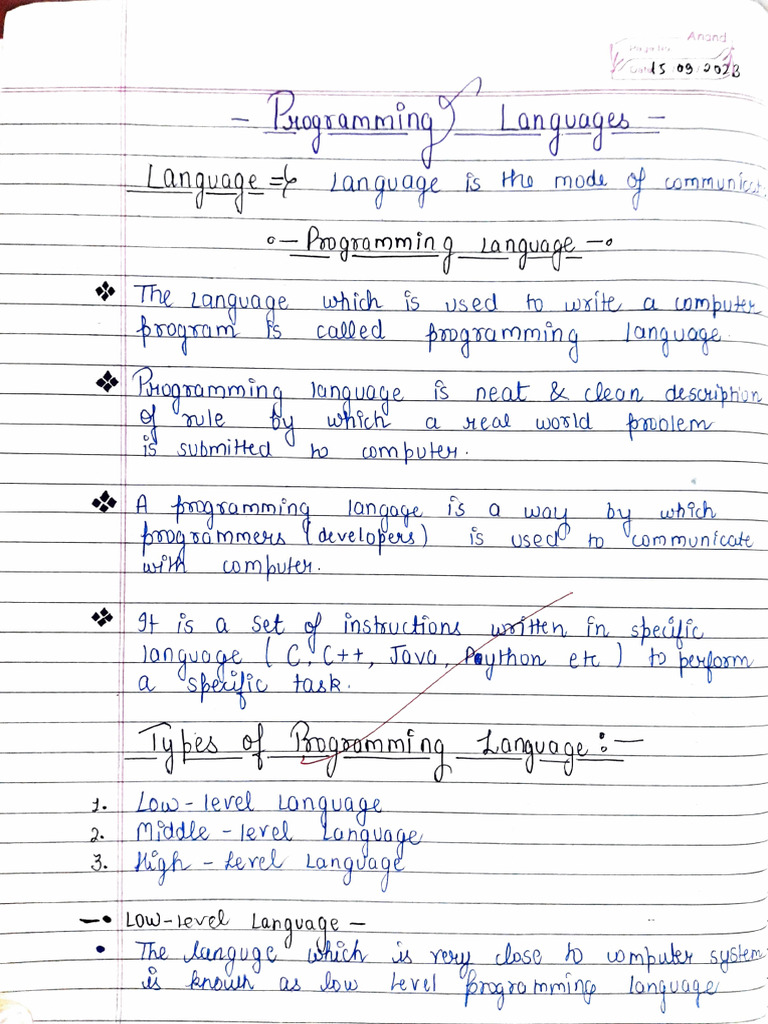 Anand
Date 15/09/2023
- Programming Languages -
Language => Language is the mode of communicat
- Programming Language -
❖ The Language which is used to write a computer
program is called programming language.
❖ Programming language is neat & clean description
of rule by which a real world problem
is submitted to computer.
❖ A programming langage is a way by which
programmers (developers) is used to communicate
with computer.
❖ It is a set of instructions written in specific
language ( C, C++, Java, Python etc ) to perform
a specific task.
Types of Programming Language :-
1. Low-level Language
2. Middle-level Language
3. High-Level Language
-• Low-level Language -
• The languge which is very close to computer system
is known as low level programming language